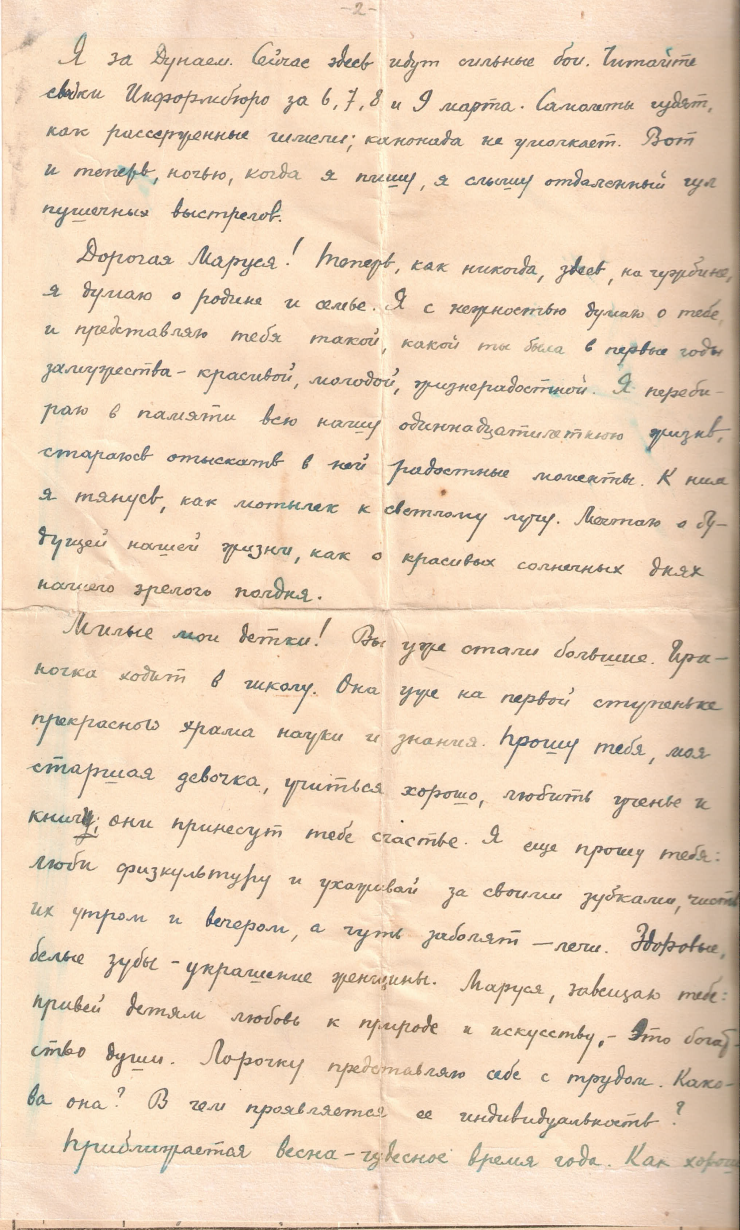 -2-
Я за Дунаем. Сейчас здесь идут сильные бои. Читайте
сводки Информбюро за 6, 7, 8 и 9 марта. Самолеты гудят,
как рассерженные шмели; канонада не умолкает. Вот
и теперь, ночью, когда я пишу, я слышу отдаленный гул
пушечных выстрелов.
Дорогая Маруся! Теперь, как никогда, здесь, на чужбине,
я думаю о родине и семье. Я с нежностью думаю о тебе,
и представляю тебя такой, какой ты была в первые годы
замужества - красивой, молодой, жизнерадостной. Я переби-
раю в памяти всю нашу одиннадцатилетнюю жизнь,
стараюсь отыскать в ней радостные моменты. К ним
я тянусь, как мотылек к светлому лучу. Мечтаю о бу-
дущей нашей жизни, как о красивых солнечных днях
нашего зрелого полдня.
Милые мои детки! Вы уже стали большие. Ира-
ночка ходит в школу. Она уже на первой ступеньке
прекрасного храма науки и знания. Прошу тебя, моя
старшая девочка, учиться хорошо, любить ученье и
книгу; они принесут тебе счастье. Я еще прошу тебя:
люби физкультуру и ухаживай за своими зубками, чисть
их утром и вечером, а чуть заболят - лечи. Здоровые,
белые зубы - украшение женщины. Маруся, завещаю тебе:
привей детям любовь к природе и искусству, - Это богат-
ство души. Лорочку представляю себе с трудом. Како-
ва она? В чем проявляется ее индивидуальность?
Приближается весна - чудесное время года. Как хорошо